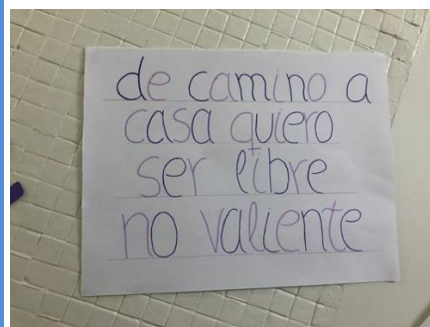 de camino a
casa quiero
ser libre
no valiente